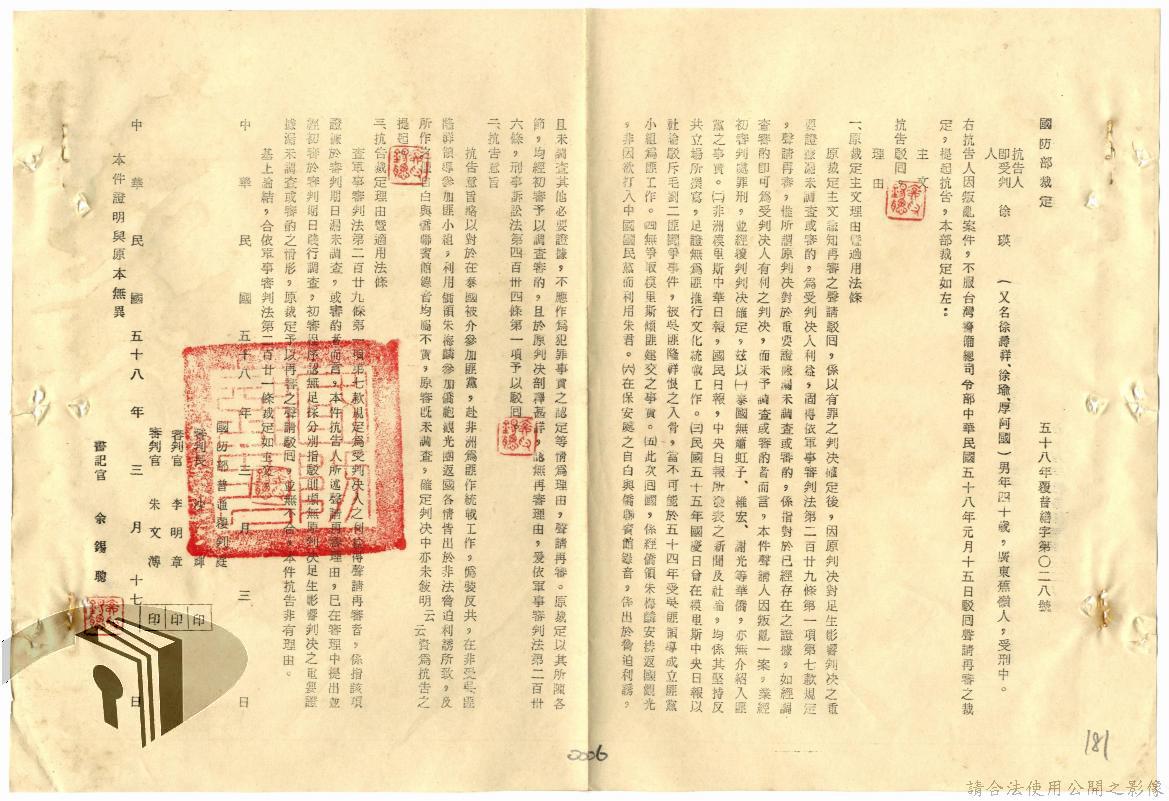 國防部裁定
五十八年覆普繕字第〇二八號
抗告人
即受判人
徐瑛
(又名徐壽祥、徐瑜、厚阿國)男年四十歲,廣東蕉嶺人,受刑中。
右抗告人因叛亂案件,不服台灣警備總司令部中華民國五十八年元月十五日駁囘聲請再審之裁
定,提起抗告,本部裁定如左:
主文
抗告駁囘
理由
一、原裁定主文理由暨適用法條
原裁定主文諭知再審之聲請駁囘,係以有罪之判決確定後,因原判決對足生影響判決之重
要證據漏未調查或審酌,為受判決人利益,固得依軍事審判法第二百廿九條第一項第七款規定
,聲請再審,惟所謂原判決對於重要證據漏未調查或審酌,係指對於已經存在之證據,如經調
查審酌即可為受判決人有利之判決,而未予調查或審酌者而言,本件聲請人因叛亂一案,業經
初審判處罪刑,並經覆判判決確定,茲以㈠泰國無蕭虹子、維宏、謝光等華僑,亦無介紹入匪
黨之事實。㈡非洲模里斯中華日報,國民日報,中央日報所發表之新聞及社論,均係其堅持反
共立場所撰寫,足證無為匪推行文化統戰工作。㈢民國五十五年國慶日曾在模里斯中央日報以
社論駁斥毛劉二匪國爭事件,被吳匪隆祥恨之入骨,當不可能於五十四年受吳匪領導成立匪黨
小組為匪工作。㈣無爭取模里斯傾匪建交之事實。㈤此次囘國,係經僑領朱梅麟安排返國觀光
,非因欲打入中國國民黨而利用朱君。㈥在保安處之自白與僑聯賓館錄音,係出於脅迫利誘,
且未調查其他必要證據,不應作為犯罪事實之認定等情為理由,聲請再審。原裁定以其所陳各
節,均經初審予以調查審酌,且於原判決剖釋甚詳,認無再審理由,爰依軍事審判法第二百卅
六條,刑事訴訟法第四百卅四條第一項予以駁囘。
二、抗告意旨
抗告意旨略以對於在泰國被介參加匪黨,赴非洲為匪作統戰工作,偽裝反共,在非受吳匪
隆祥領導參加匪小組,利用僑領朱海麟參加僑胞觀光團返國各情皆出於非法脅迫利誘所致,及
所作之坦白自白與僑聯賓館錄音均屬不實,原審既未調查,確定判決中亦未敍明云云資為抗告之
提起
三、抗告裁定理由暨適用法條
查軍事審判法第二百廿九條第一項第七款規定為受判決人之利益得聲請再審者,係指該項
證據於審判期日漏未調查,或審酌者而言,本件抗告人所述聲請再審理由,已在審理中提出並
經初審於審判期日踐行調查,初審程序認無足採分別指駁則顯無原判決足生影響判決之重要證
據漏未調查或審酌之情形,原裁定予以再審之聲請駁囘,並無不合,本件抗告非有理由。
基上論結,合依軍事審判法第二百廿一條裁定如主文。
中華民國五十八年三月三日
國防部普通覆判庭
審判長
審判官 李明章 印
審判官 朱文溥 印
本件證明與原本無異
中華民國五十八年三月十七日
書記官 余錫聰
181
0006
請合法使用公開之影像